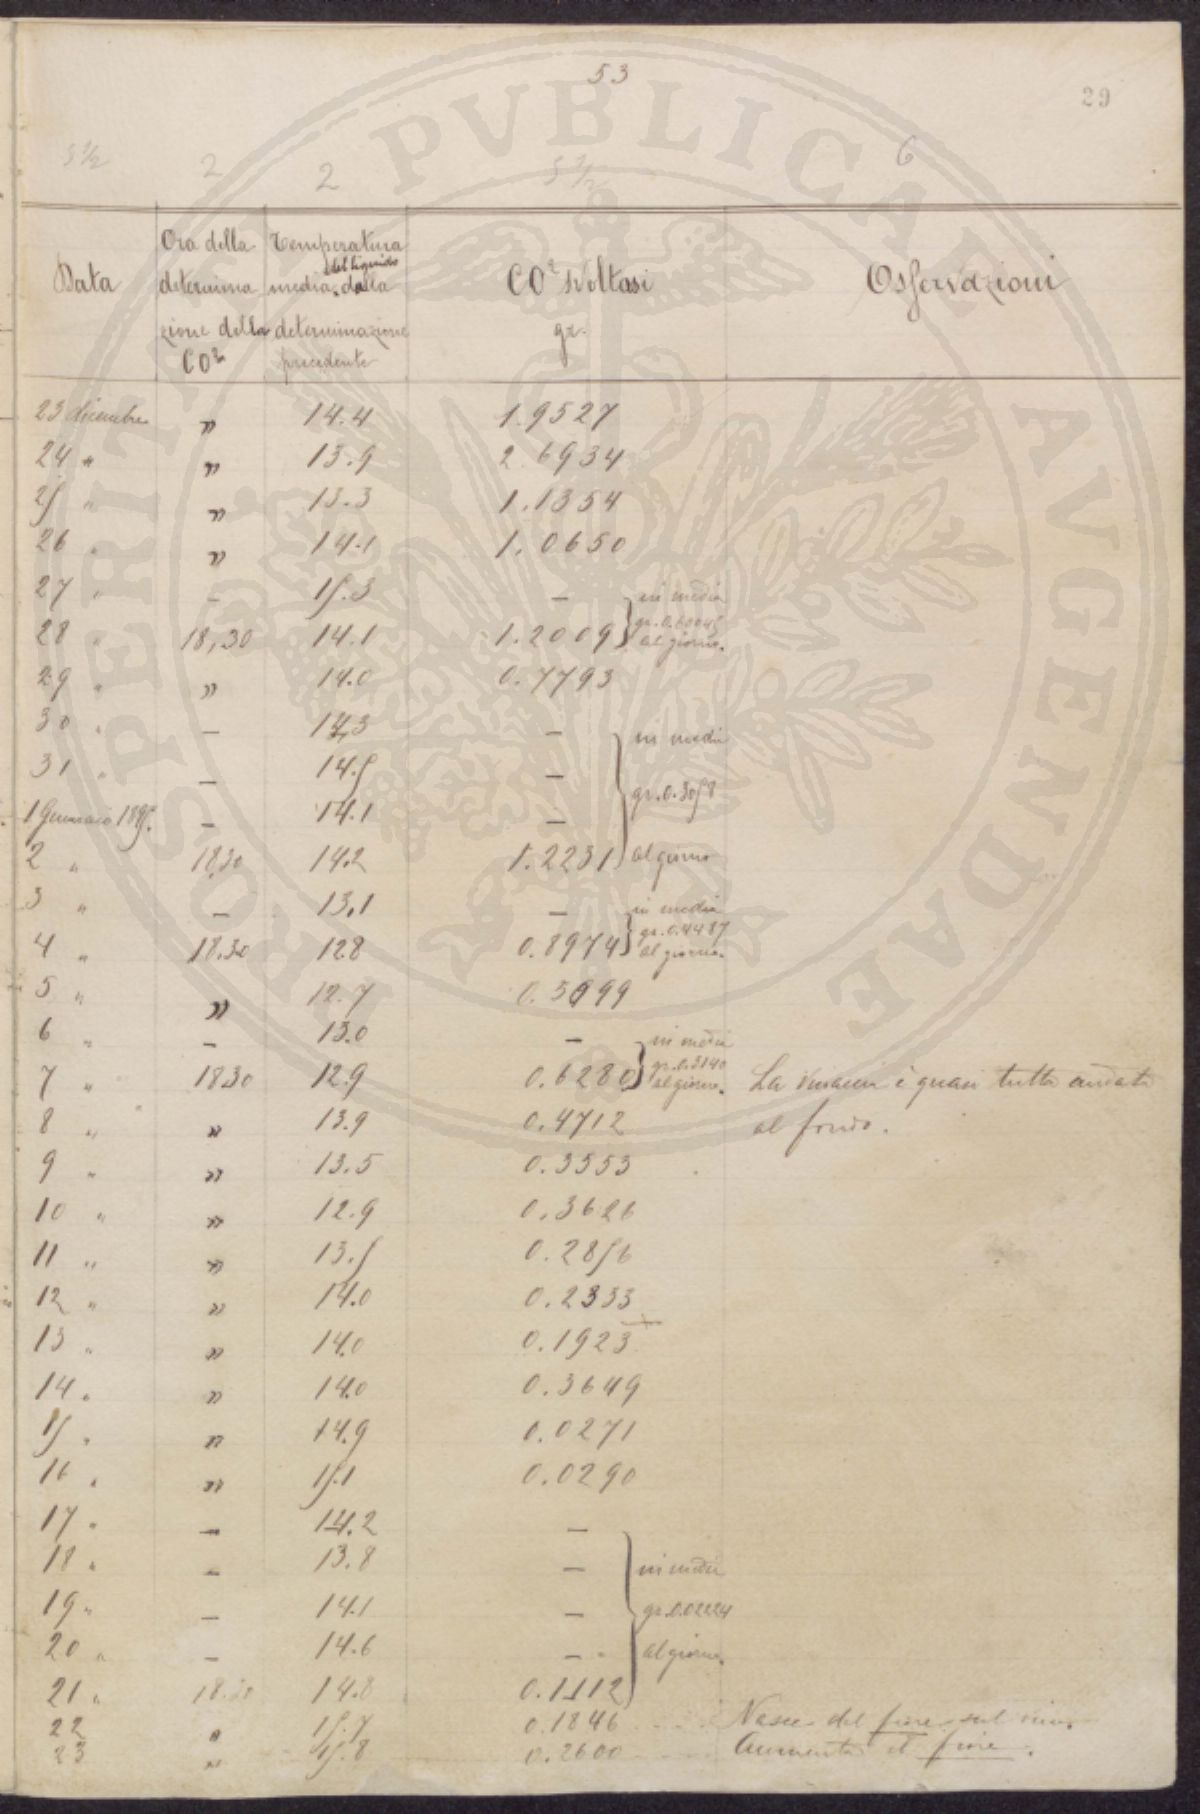 53
29
5 1/2 2 2 5 1/2 6
Data
Ora della
determina
zione della
CO²
Temperatura
del liquido
media dalla
determinazione
precedente
CO² svoltasi
gr.
Osservazioni
23 dicembre " 14.4 1.9527
24 " " 13.9 2.6934
25 " " 13.3 1.1354
26 " " 14.1 1.0650
27 " – 15.3 – in media
gr. 0.60045
28 " 18,30 14.1 1.2009 al giorno.
29 " " 14.0 0.7793
30 " – 14.3 – in media
31 " – 14.5 –
gr. 0.3058
1 Gennaio 1895. – 14.1 –
2 " 18.30 14.2 1.2231 al giorno
3 " – 13,1 – in media
gr. 0.4487
4 " 18.30 12.8 0.8974 al giorno.
5 " " 12.7 0.3699
6 " – 13.0 – in media
gr. 0.3140
7 " 18.30 12.9 0.6280 al giorno. La vinaccia è quasi tutta andata
8 " " 13.9 0.4712 al fondo.
9 " " 13.5 0.3553
10 " " 12.9 0.3626
11 " " 13.5 0.2856
12 " " 14.0 0.2333
13 " " 14.0 0.1923
14 " " 14.0 0.3649
15 " " 14.9 0.0271
16 " " 15.1 0.0290
17 " – 14.2 –
18 " – 13.8 – in media
19 " – 14.1 – gr. 0.02224
20 " – 14.6 – al giorno.
21 " 18.30 14.8 0.1112
22 " 15.7 0.1846 Nasce del fiore sul vino.
23 " 15.8 0.2600 Aumenta il fiore.
PROSPERITATI PVBLICAE AVGENDAE